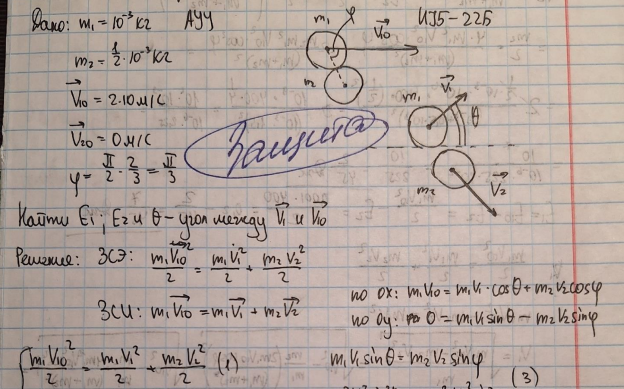 Дано: m₁ = 10⁻³ кг АУУ ИУ5-22Б
m₂ = 1/2 · 10⁻³ кг
V₁₀ = 2·10 м/с
V₂₀ = 0 м/с
φ = π/2 · 2/3 = π/3
Защита
m₁ φ V₁₀
m₂
m₁ V₁ θ
m₂ V₂
Найти E₁; E₂ и θ - угол между V₁ и V₁₀
Решение: ЗСЭ: m₁V₁₀²/2 = m₁V₁²/2 + m₂V₂²/2
ЗСИ: m₁V₁₀ = m₁V₁ + m₂V₂
по ox: m₁V₁₀ = m₁V₁·cosθ + m₂V₂cosφ
по oy: 0 = m₁V₁sinθ - m₂V₂sinφ
m₁V₁₀²/2 = m₁V₁²/2 + m₂V₂²/2 (1)
m₁V₁sinθ = m₂V₂sinφ
(3)